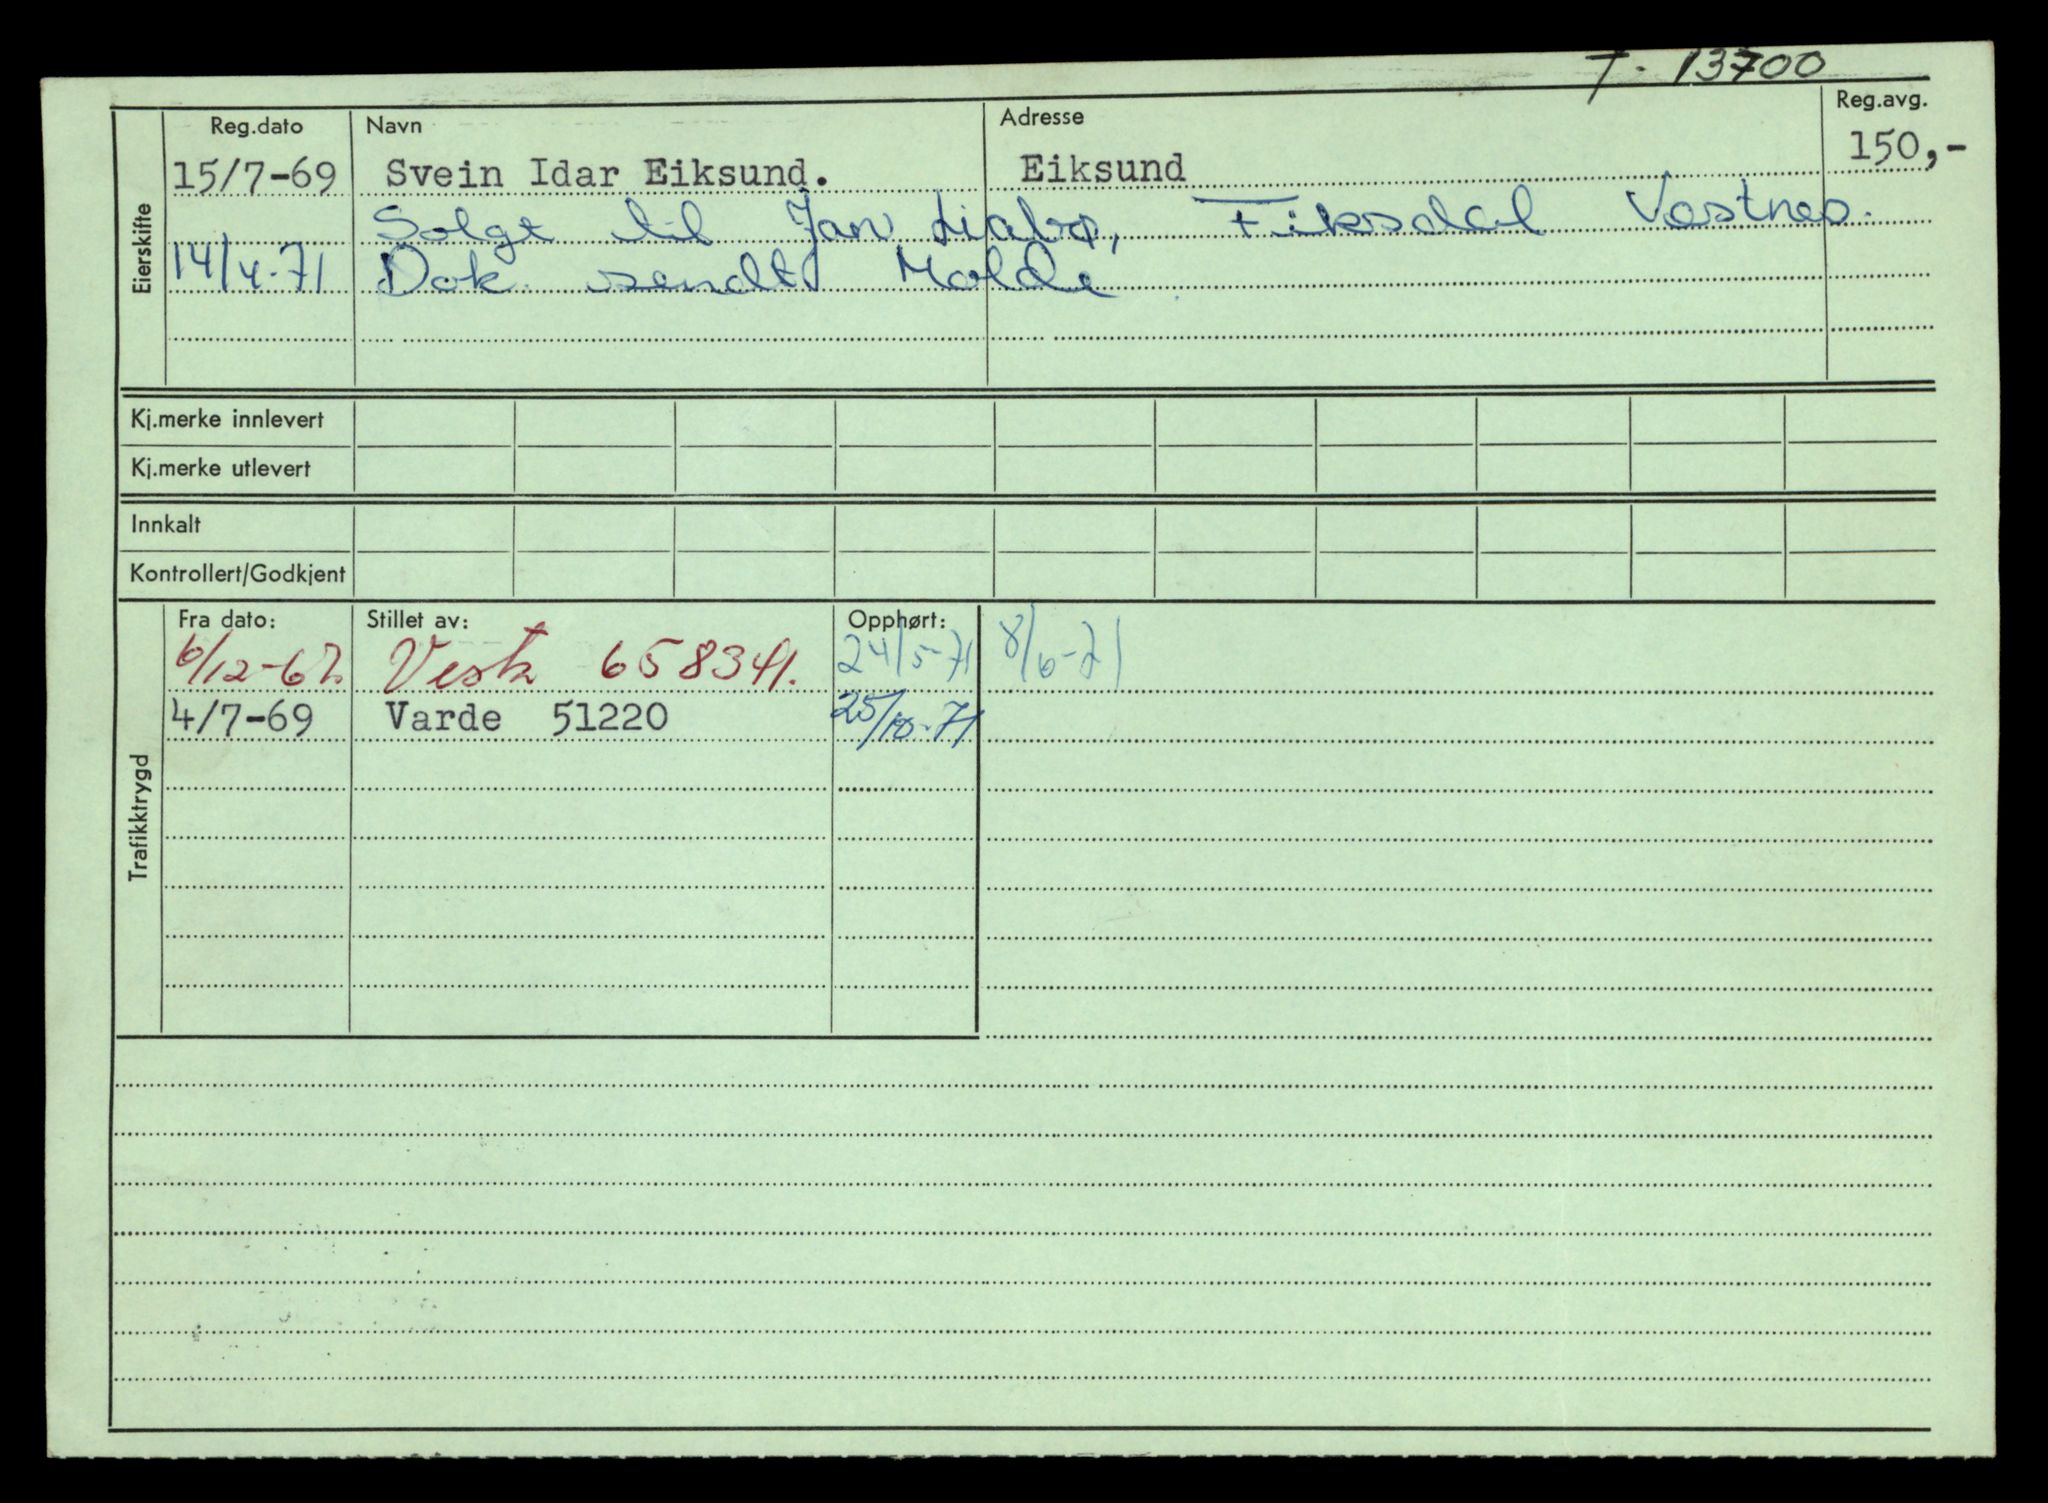 T- 13700
Reg.dato Navn Adresse Reg.avg.
Eierskifte
15/7-69 Svein Idar Eiksund. Eiksund 150,-
Solgt til Jan Liabø, Fiksdal Vestnes.
14/4-71 Dok. sendt Molde
Kj.merke innlevert
Kj.merke utlevert
Innkalt
Kontrollert/Godkjent
Trafikktrygd
Fra dato: Stillet av: Opphørt:
6/12-67 Vesta 658341. 24/5-71 8/6-71
4/7-69 Varde 51220 25/10-71